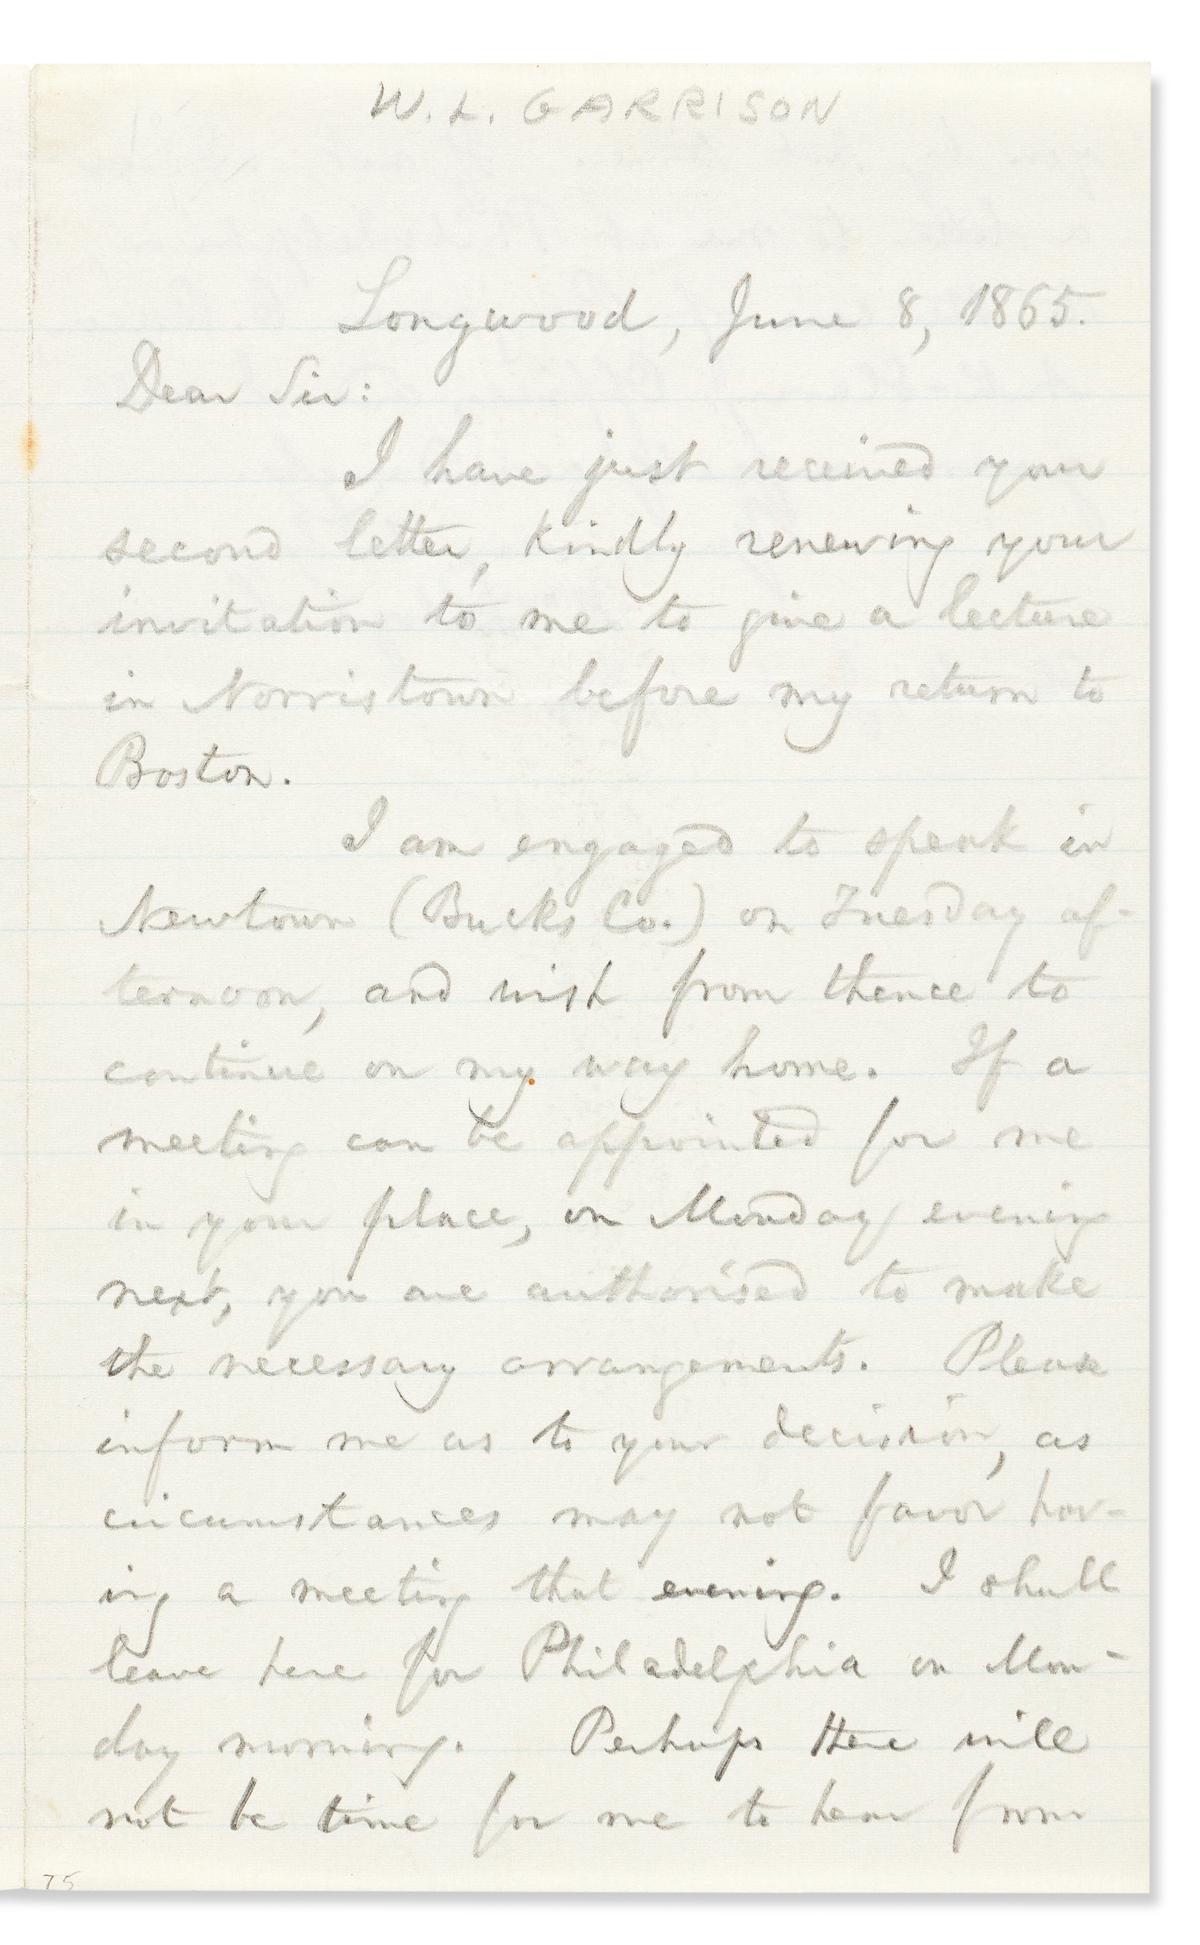 W. L. GARRISON
Longwood, June 8, 1865.
Dear Sir:
I have just received your
second letter, kindly renewing your
invitation to me to give a lecture
in Norristown before my return to
Boston.
I am engaged to speak in
Newtown (Bucks Co.) on Tuesday af-
ternoon, and wish from thence to
continue on my way home. If a
meeting can be appointed for me
in your place, on Monday evening
next, you are authorised to make
the necessary arrangements. Please
inform me as to your decision, as
circumstances may not favor hav-
ing a meeting that evening. I shall
leave here for Philadelphia on Mon-
day morning. Perhaps there will
not be time for me to hear from
75